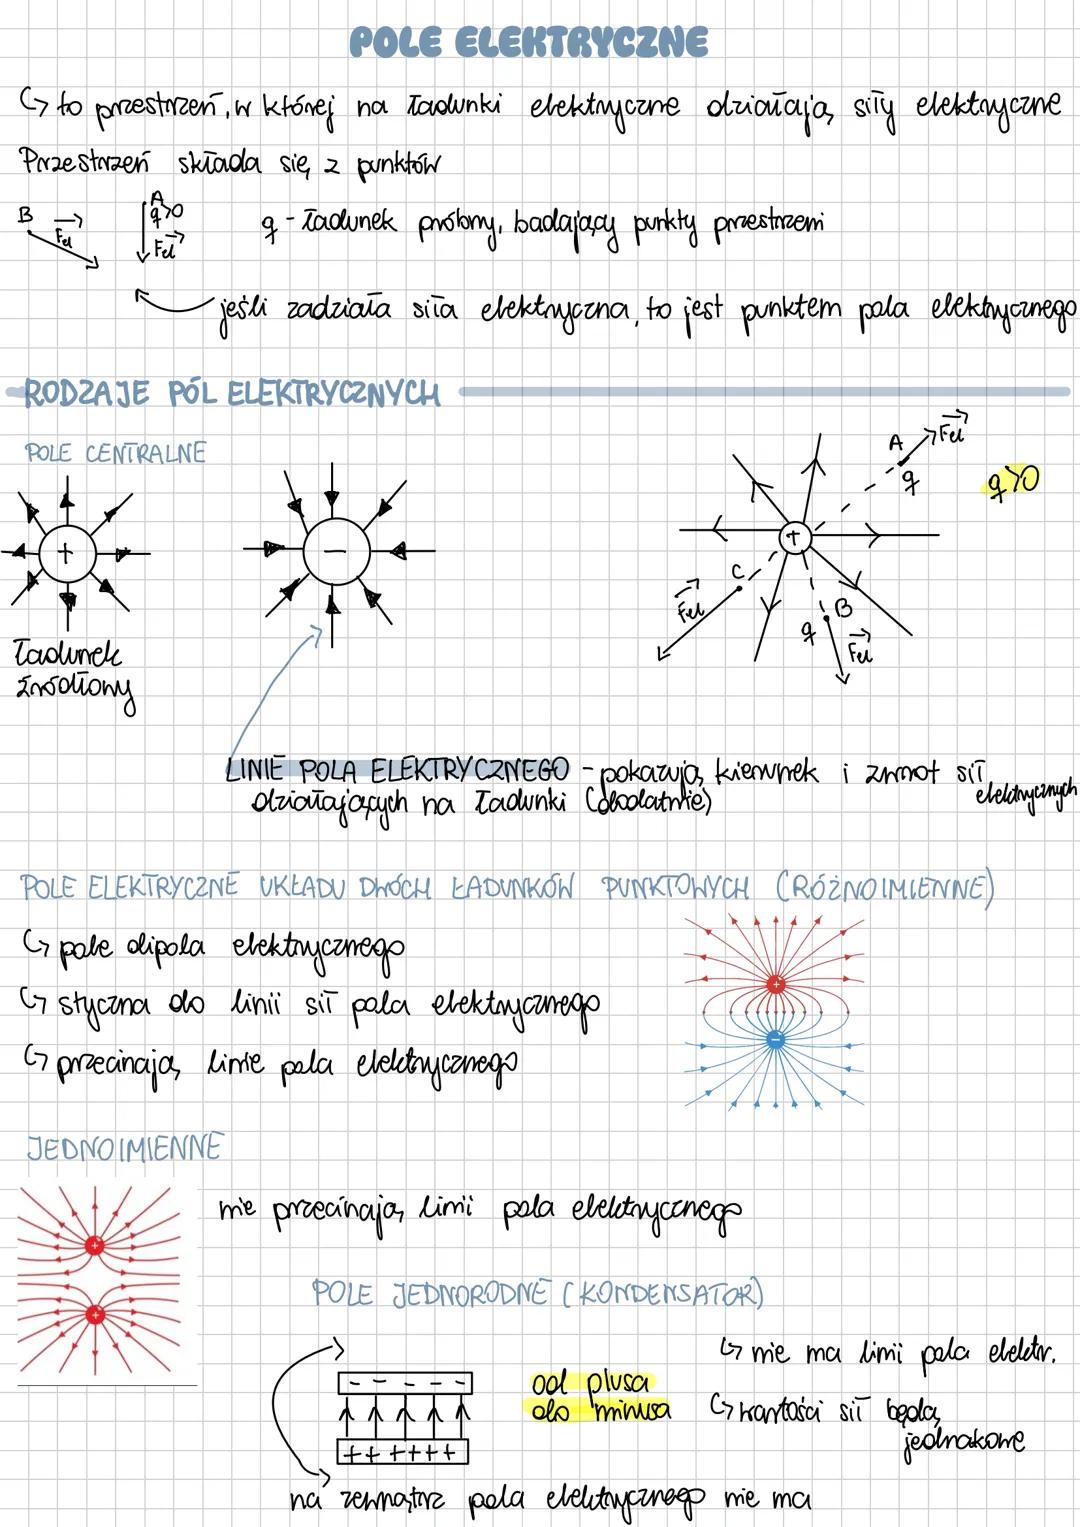 POLE ELEKTRYCZNE
↳ to przestrzeń, w której na ładunki elektryczne działają siły elektryczne
Przestrzeń składa się z punktów
B Fel A q>0 Fel q - ładunek próbny, badający punkty przestrzeni
jeśli zadziała siła elektryczna, to jest punktem pola elektrycznego
RODZAJE PÓL ELEKTRYCZNYCH
POLE CENTRALNE
A Fel q q>0
+ − +
C Fel q B Fel
ładunek
źródłowy
LINIE POLA ELEKTRYCZNEGO - pokazują kierunek i zwrot sił elektrycznych
działających na ładunki (dodatnie)
POLE ELEKTRYCZNE UKŁADU DWÓCH ŁADUNKÓW PUNKTOWYCH (RÓŻNOIMIENNE)
↳ pole dipola elektrycznego
↳ styczna do linii sił pola elektrycznego
↳ przecinają linie pola elektrycznego
+
−
JEDNOIMIENNE
nie przecinają linii pola elektrycznego
+
+
POLE JEDNORODNE (KONDENSATOR)
↳ nie ma linii pola elektr.
- - - - -
od plusa
do minusa
↳ wartości sił będą
jednakowe
+++++++
na zewnątrz pola elektrycznego nie ma